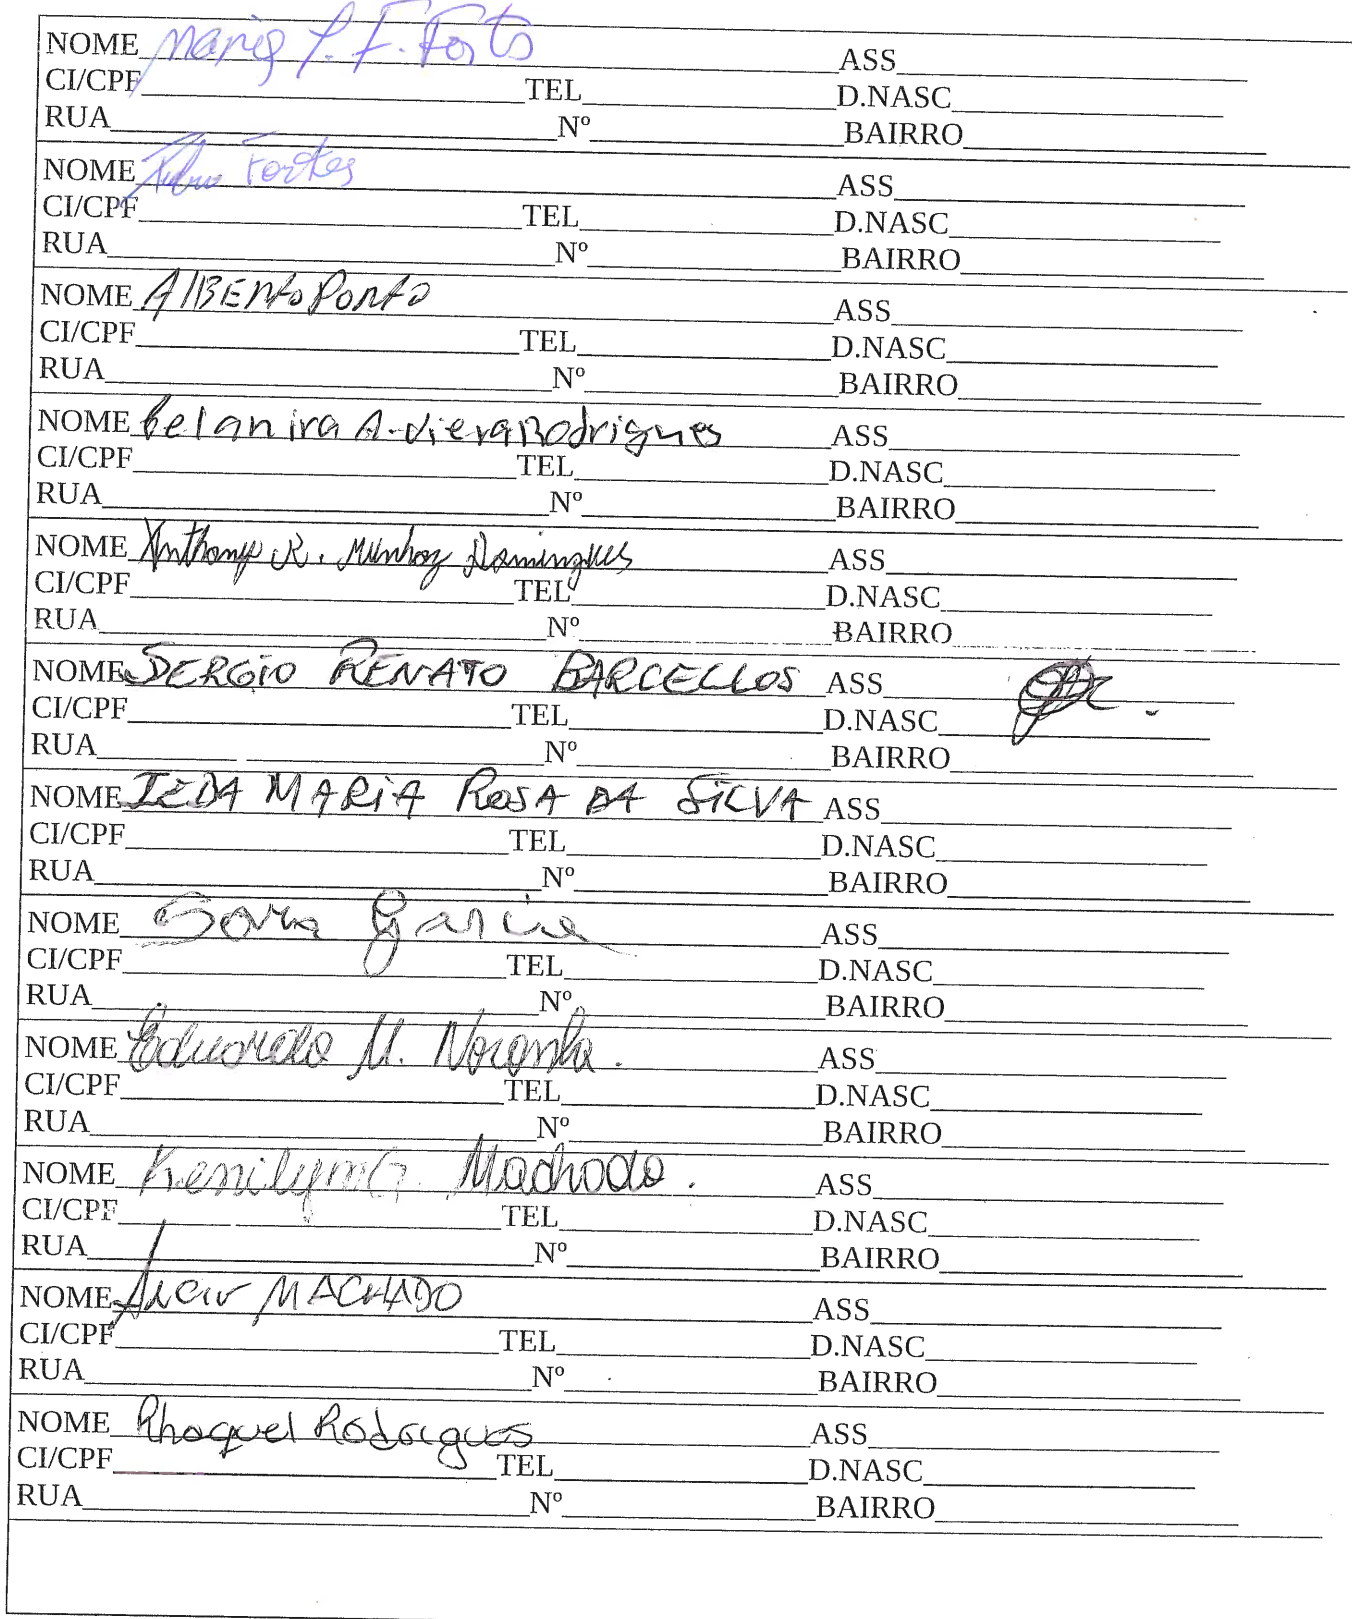 NOME Maria P. F. Forts ASS
CI/CPF TEL D.NASC
RUA Nº BAIRRO
NOME Fortes ASS
CI/CPF TEL D.NASC
RUA Nº BAIRRO
NOME AlBERto Porto ASS
CI/CPF TEL D.NASC
RUA Nº BAIRRO
NOME Celanira A. Viera Rodrigues ASS
CI/CPF TEL D.NASC
RUA Nº BAIRRO
NOME Anthony R. Munhoz Domingues ASS
CI/CPF TEL D.NASC
RUA Nº BAIRRO
NOME SERGiO RENATO BARCELLOS ASS
CI/CPF TEL D.NASC
RUA Nº BAIRRO
NOME IEDA MARiA ROSA DA SiLVA ASS
CI/CPF TEL D.NASC
RUA Nº BAIRRO
NOME Garcia ASS
CI/CPF TEL D.NASC
RUA Nº BAIRRO
NOME Eduardo M. Noronha. ASS
CI/CPF TEL D.NASC
RUA Nº BAIRRO
NOME Machado. ASS
CI/CPF TEL D.NASC
RUA Nº BAIRRO
NOME MACHADO ASS
CI/CPF TEL D.NASC
RUA Nº BAIRRO
NOME Rhaquel Rodrigues ASS
CI/CPF TEL D.NASC
RUA Nº BAIRRO